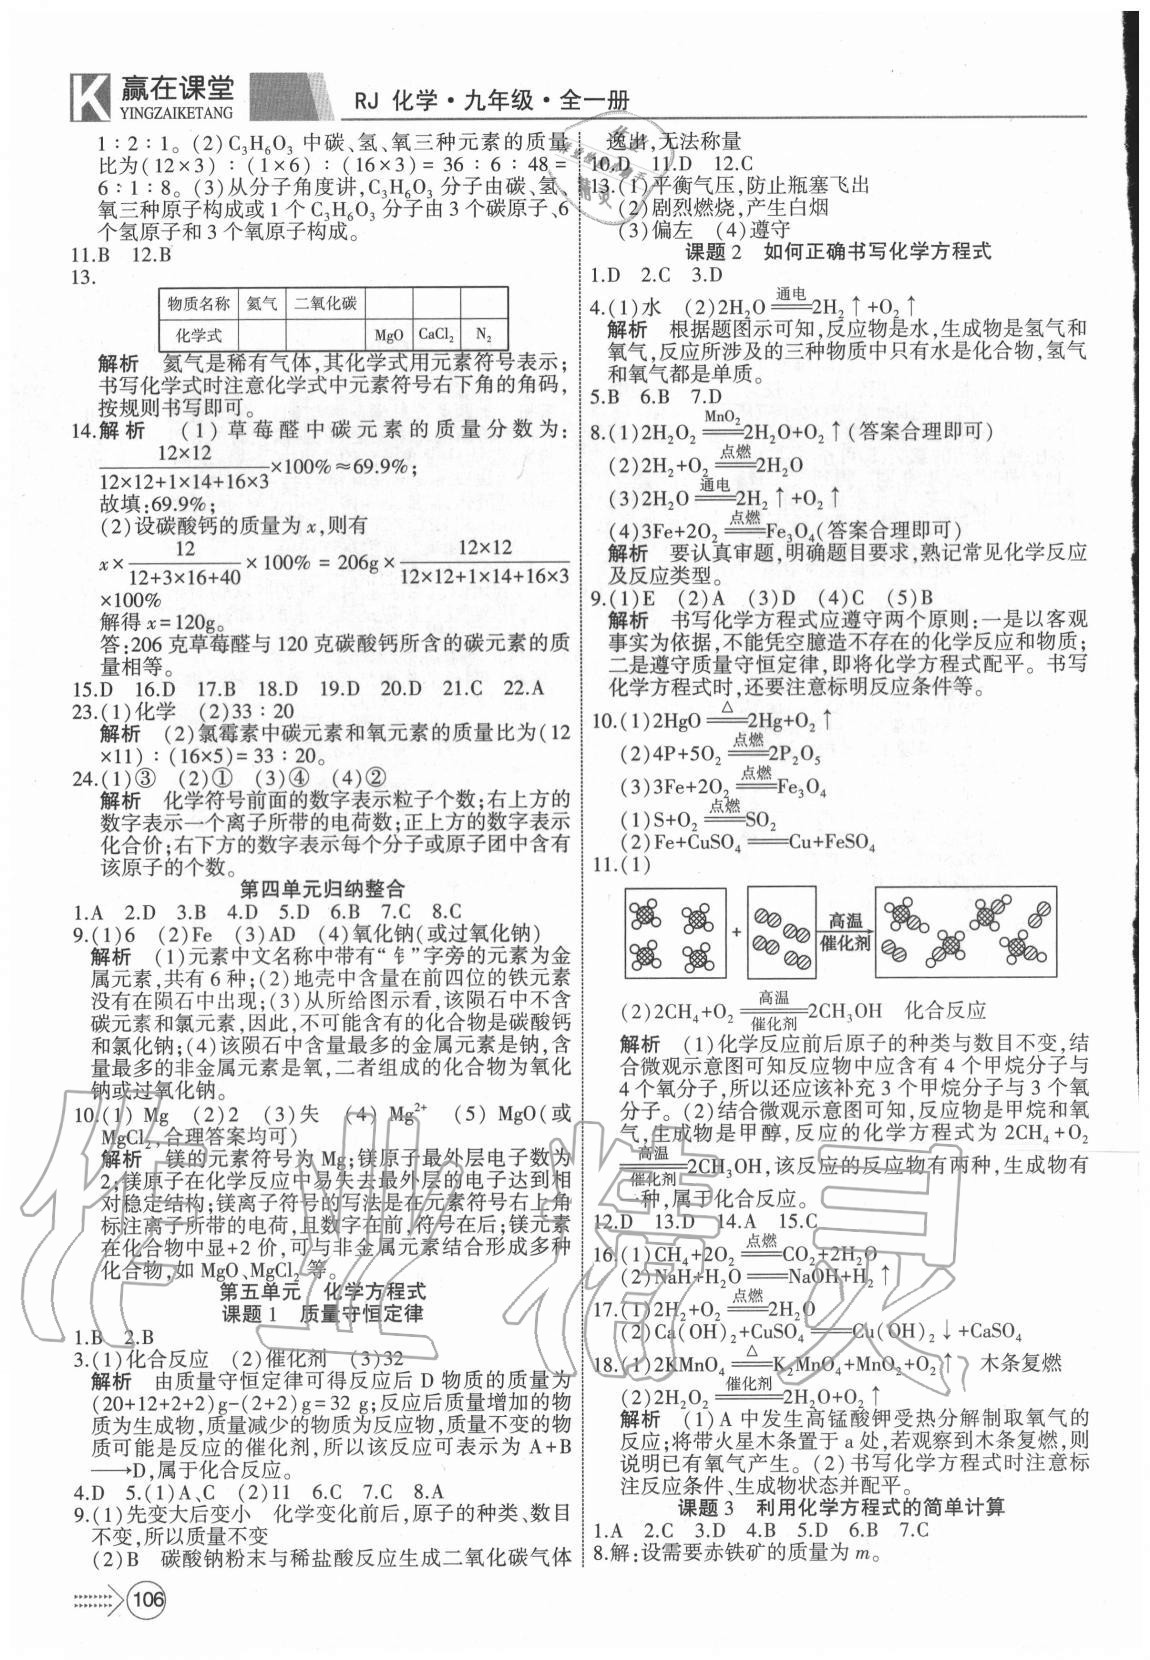 赢在课堂
YINGZAIKETANG
RJ 化学·九年级·全一册
1∶2∶1。(2)C₃H₆O₃ 中碳、氢、氧三种元素的质量
比为(12×3)∶(1×6)∶(16×3)=36∶6∶48=
6∶1∶8。(3)从分子角度讲,C₃H₆O₃ 分子由碳、氢、
氧三种原子构成或1个C₃H₆O₃ 分子由3个碳原子、6
个氢原子和3个氧原子构成。
11.B 12.B
13.
物质名称 氦气 二氧化碳
化学式 MgO CaCl₂ N₂
解析 氦气是稀有气体,其化学式用元素符号表示;
书写化学式时注意化学式中元素符号右下角的角码,
按规则书写即可。
14.解析 (1)草莓醛中碳元素的质量分数为:
12×12
12×12+1×14+16×3 ×100%≈69.9%;
故填:69.9%;
(2)设碳酸钙的质量为x,则有
x× 12/(12+3×16+40) ×100%=206g× 12×12/(12×12+1×14+16×3)
×100%
解得x=120g。
答:206克草莓醛与120克碳酸钙所含的碳元素的质
量相等。
15.D 16.D 17.B 18.D 19.D 20.D 21.C 22.A
23.(1)化学 (2)33∶20
解析 (2)氯霉素中碳元素和氧元素的质量比为(12
×11)∶(16×5)=33∶20。
24.(1)③ (2)① (3)④ (4)②
解析 化学符号前面的数字表示粒子个数;右上方的
数字表示一个离子所带的电荷数;正上方的数字表示
化合价;右下方的数字表示每个分子或原子团中含有
该原子的个数。
第四单元归纳整合
1.A 2.D 3.B 4.D 5.D 6.B 7.C 8.C
9.(1)6 (2)Fe (3)AD (4)氧化钠(或过氧化钠)
解析 (1)元素中文名称中带有“钅”字旁的元素为金
属元素,共有6种;(2)地壳中含量在前四位的铁元素
没有在陨石中出现;(3)从所给图示看,该陨石中不含
碳元素和氯元素,因此,不可能含有的化合物是碳酸钙
和氯化钠;(4)该陨石中含量最多的金属元素是钠,含
量最多的非金属元素是氧,二者组成的化合物为氧化
钠或过氧化钠。
10.(1) Mg (2)2 (3)失 (4) Mg²⁺ (5) MgO(或
MgCl₂,合理答案均可)
解析 镁的元素符号为Mg;镁原子最外层电子数为
2;镁原子在化学反应中易失去最外层的电子达到相
对稳定结构;镁离子符号的写法是在元素符号右上角
标注离子所带的电荷,且数字在前,符号在后;镁元素
在化合物中显+2价,可与非金属元素结合形成多种
化合物,如MgO、MgCl₂ 等。
第五单元 化学方程式
课题1 质量守恒定律
1.B 2.B
3.(1)化合反应 (2)催化剂 (3)32
解析 由质量守恒定律可得反应后D物质的质量为
(20+12+2+2)g-(2+2)g=32 g;反应后质量增加的物
质为生成物,质量减少的物质为反应物,质量不变的物
质可能是反应的催化剂,所以该反应可表示为A+B
⟶D,属于化合反应。
4.D 5.(1)A、C (2)11 6.C 7.C 8.A
9.(1)先变大后变小 化学变化前后,原子的种类、数目
不变,所以质量不变
(2)B 碳酸钠粉末与稀盐酸反应生成二氧化碳气体
106
逸出,无法称量
10.D 11.D 12.C
13.(1)平衡气压,防止瓶塞飞出
(2)剧烈燃烧,产生白烟
(3)偏左 (4)遵守
课题2 如何正确书写化学方程式
1.D 2.C 3.D
4.(1)水 (2)2H₂O ══通电══ 2H₂↑+O₂↑
解析 根据题图示可知,反应物是水,生成物是氢气和
氧气,反应所涉及的三种物质中只有水是化合物,氢气
和氧气都是单质。
5.B 6.B 7.D
8.(1)2H₂O₂ ══MnO₂══ 2H₂O+O₂↑(答案合理即可)
(2)2H₂+O₂ ══点燃══ 2H₂O
(3)2H₂O ══通电══ 2H₂↑+O₂↑
(4)3Fe+2O₂ ══点燃══ Fe₃O₄(答案合理即可)
解析 要认真审题,明确题目要求,熟记常见化学反应
及反应类型。
9.(1)E (2)A (3)D (4)C (5)B
解析 书写化学方程式应遵守两个原则:一是以客观
事实为依据,不能凭空臆造不存在的化学反应和物质;
二是遵守质量守恒定律,即将化学方程式配平。书写
化学方程式时,还要注意标明反应条件等。
10.(1)2HgO ══△══ 2Hg+O₂↑
(2)4P+5O₂ ══点燃══ 2P₂O₅
(3)3Fe+2O₂ ══点燃══ Fe₃O₄
(1)S+O₂ ══点燃══ SO₂
(2)Fe+CuSO₄ ══ Cu+FeSO₄
11.(1)
+ 高温 催化剂
(2)2CH₄+O₂ ══高温 催化剂══ 2CH₃OH 化合反应
解析 (1)化学反应前后原子的种类与数目不变,结
合微观示意图可知反应物中应含有4个甲烷分子与
4个氧分子,所以还应该补充3个甲烷分子与3个氧
分子。(2)结合微观示意图可知,反应物是甲烷和氧
气,生成物是甲醇,反应的化学方程式为2CH₄+O₂
══高温 催化剂══ 2CH₃OH,该反应的反应物有两种,生成物有
一种,属于化合反应。
12.D 13.D 14.A 15.C
16.(1)CH₄+2O₂ ══点燃══ CO₂+2H₂O
(2)NaH+H₂O ══ NaOH+H₂↑
17.(1)2H₂+O₂ ══点燃══ 2H₂O
(2)Ca(OH)₂+CuSO₄ ══ Cu(OH)₂↓+CaSO₄
18.(1)2KMnO₄ ══△══ K₂MnO₄+MnO₂+O₂↑ 木条复燃
(2)2H₂O₂ ══催化剂══ 2H₂O+O₂↑
解析 (1)A中发生高锰酸钾受热分解制取氧气的
反应;将带火星木条置于a处,若观察到木条复燃,则
说明已有氧气产生。(2)书写化学方程式时注意标
注反应条件、生成物状态并配平。
课题3 利用化学方程式的简单计算
1.A 2.C 3.D 4.B 5.D 6.B 7.C
8.解:设需要赤铁矿的质量为m。
作业精灵